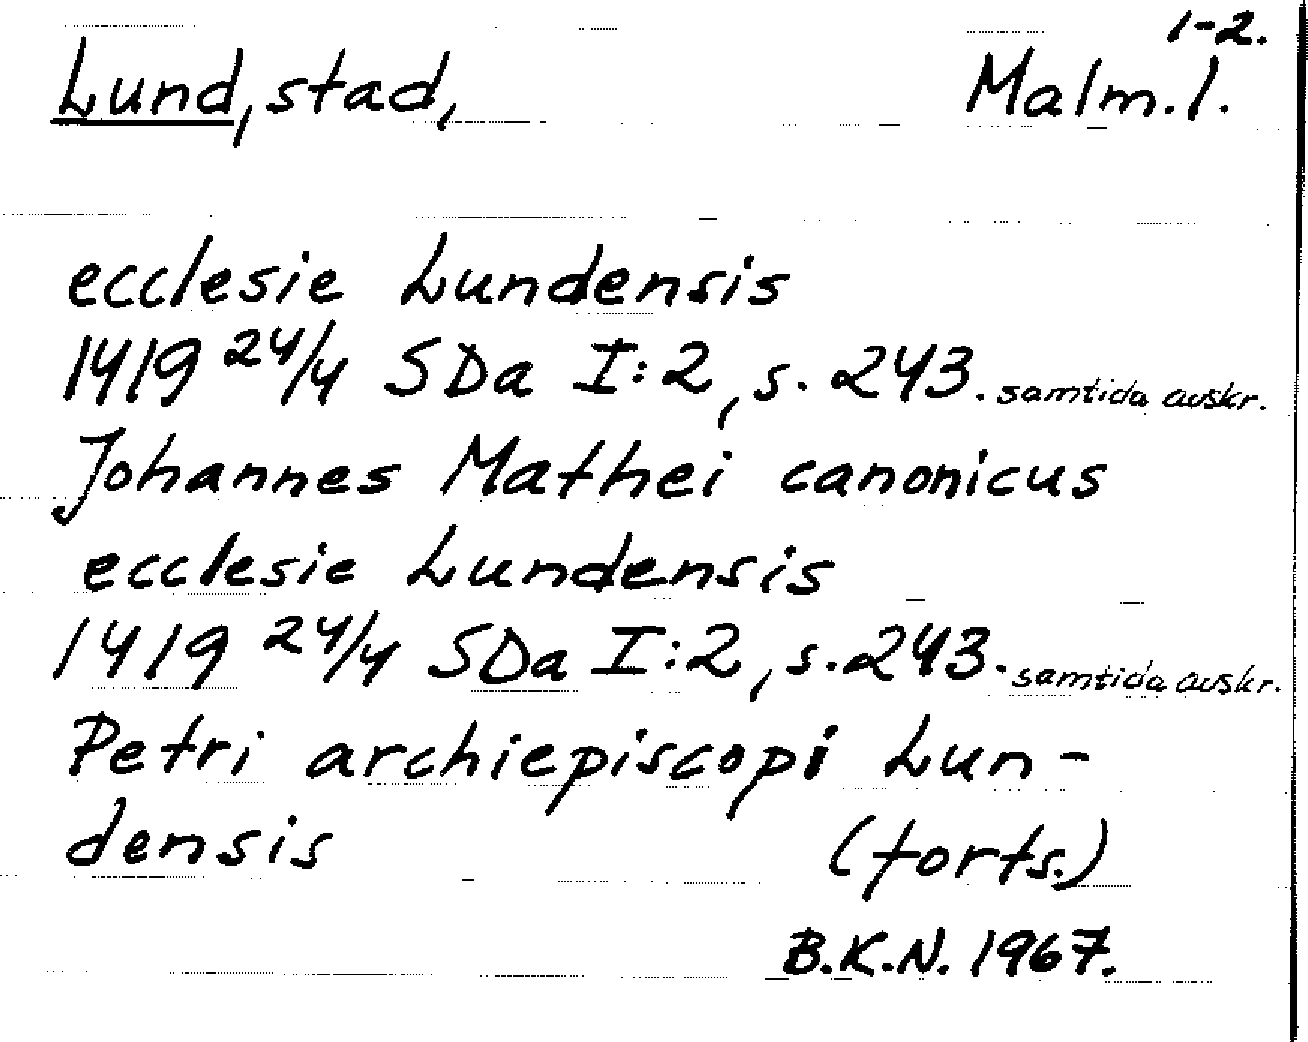 1-2.
Lund, stad, Malm. l.
ecclesie Lundensis
1419 24/4 SDa I:2, s. 243. samtida avskr.
Johannes Mathei canonicus
ecclesie Lundensis
1419 24/4 SDa I:2, s. 243. samtida avskr.
Petri archiepiscopi Lun-
densis (forts.)
B.K.N. 1967.